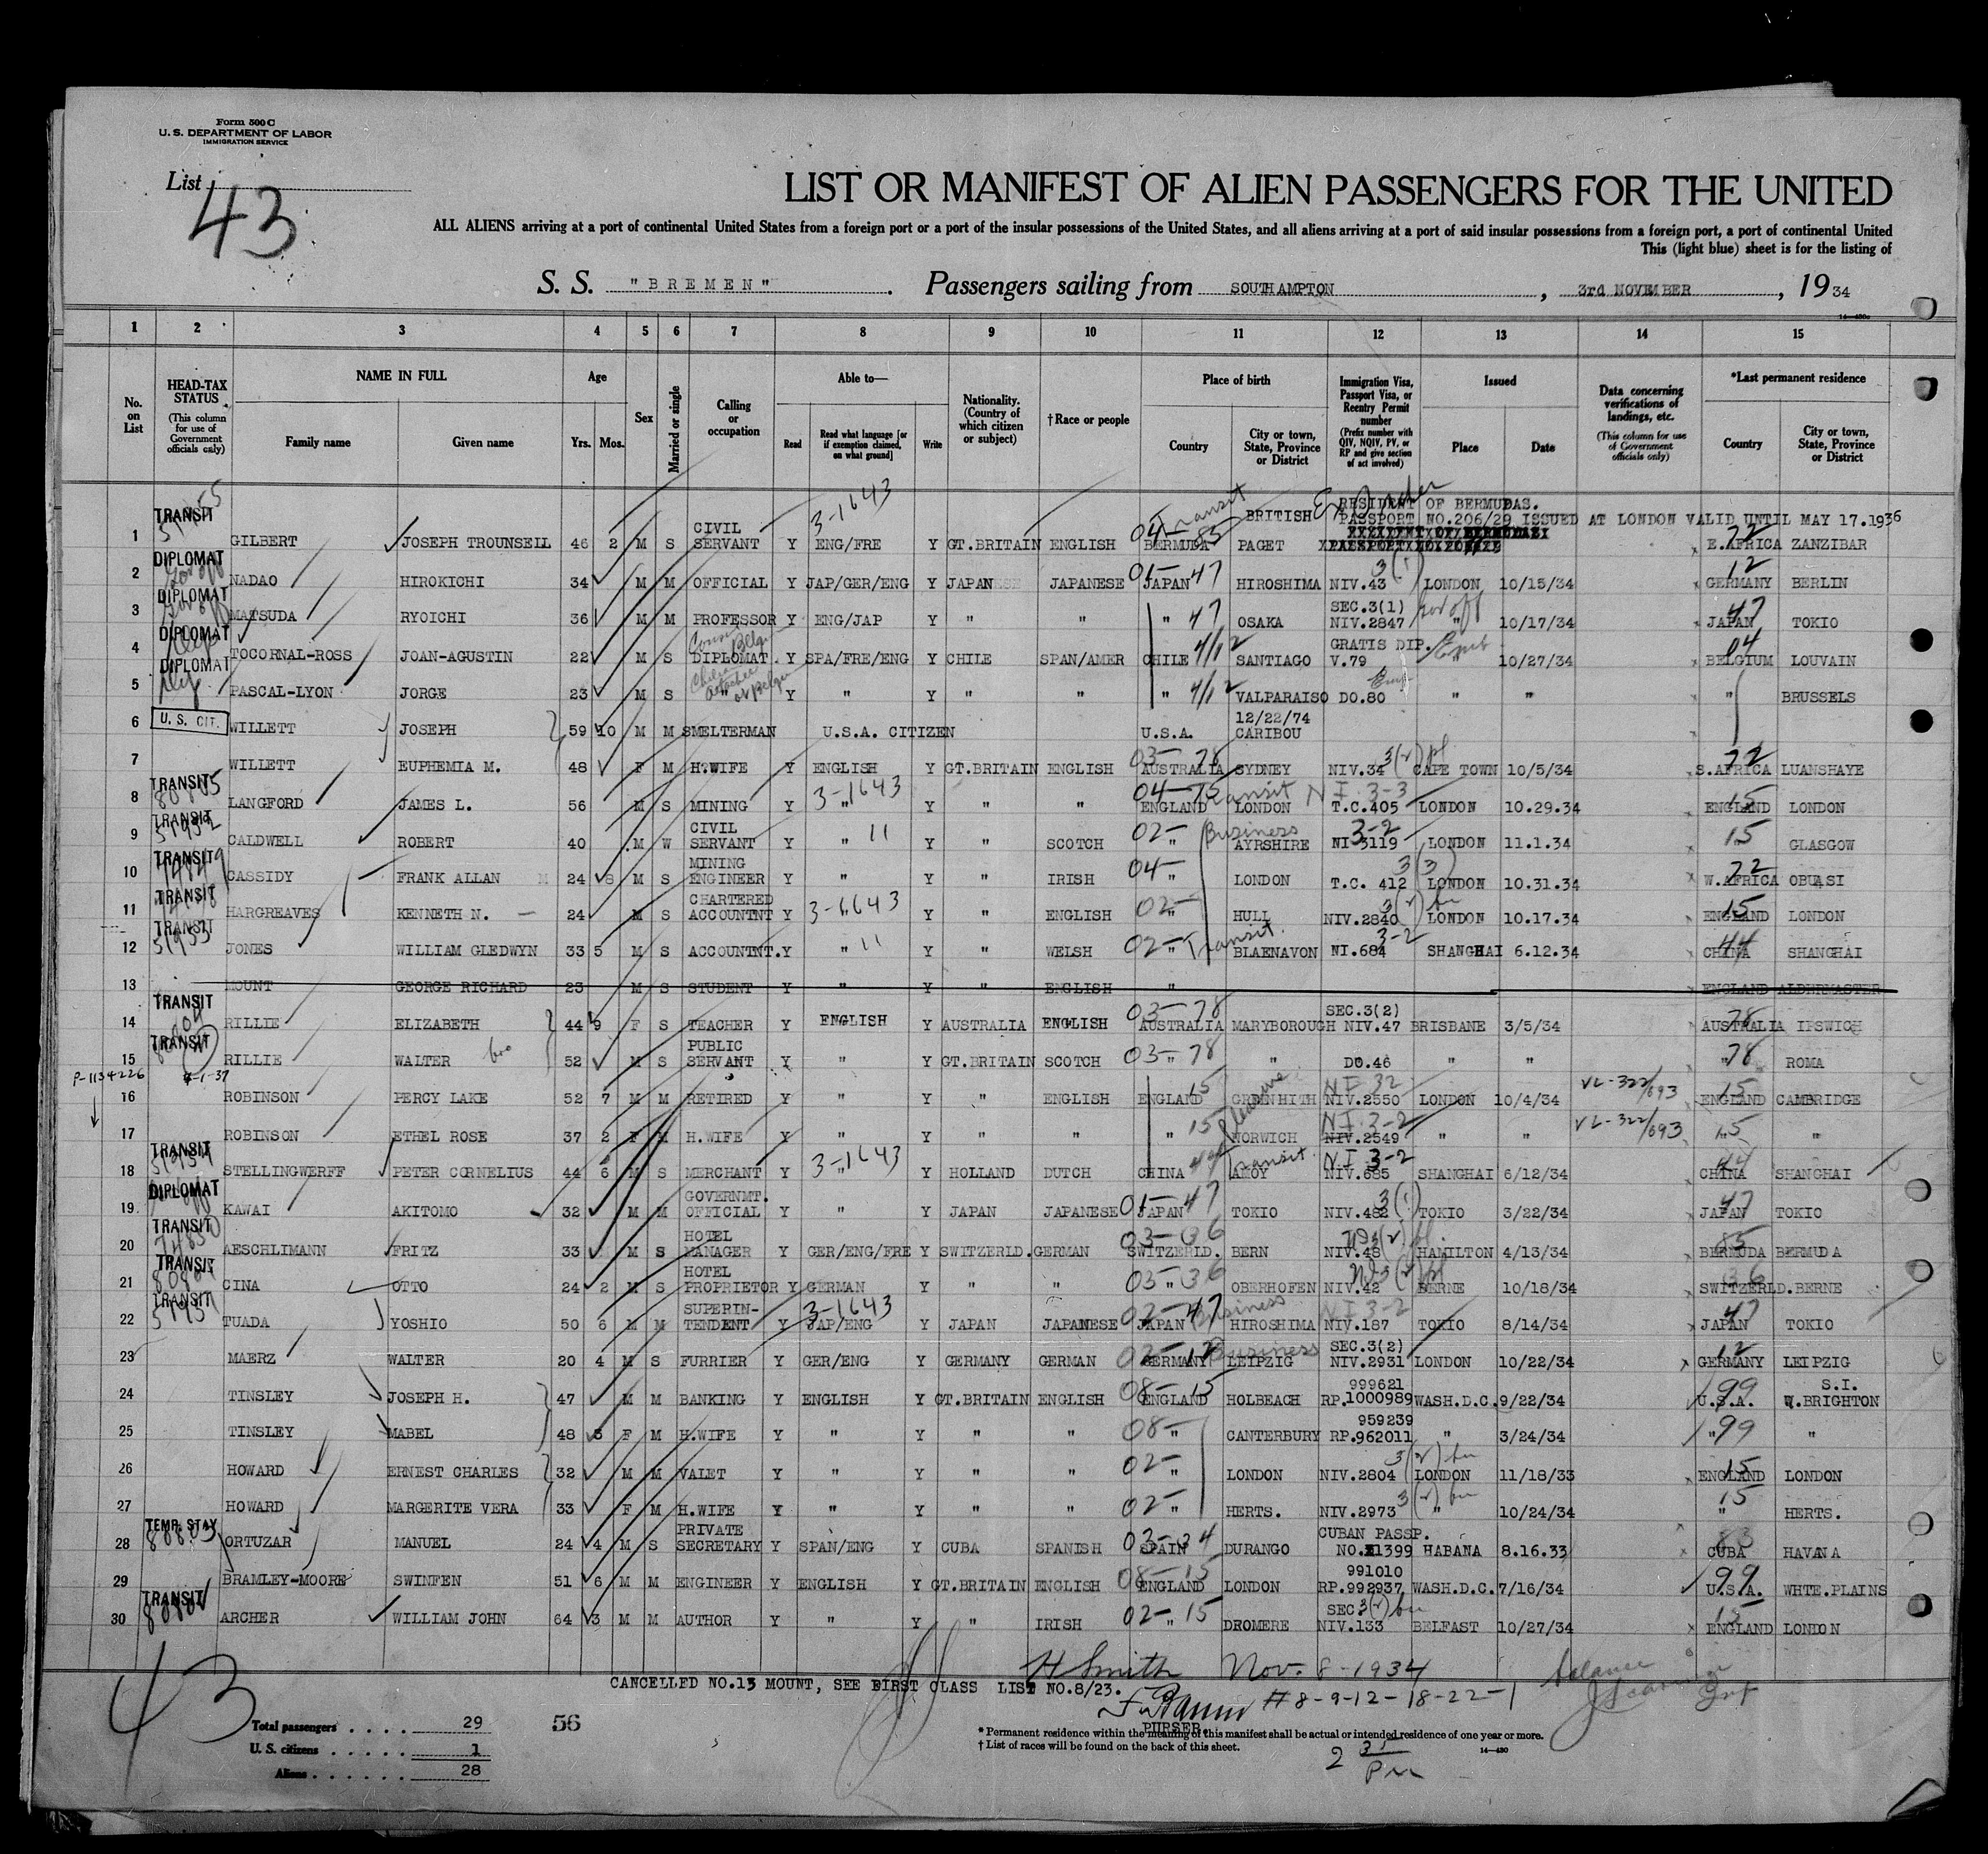 Form 500 C
U. S. DEPARTMENT OF LABOR
IMMIGRATION SERVICE
List 43
LIST OR MANIFEST OF ALIEN PASSENGERS FOR THE UNITED
ALL ALIENS arriving at a port of continental United States from a foreign port or a port of the insular possessions of the United States, and all aliens arriving at a port of said insular possessions from a foreign port, a port of continental United
This (light blue) sheet is for the listing of
S. S. "BREMEN". Passengers sailing from SOUTHAMPTON, 3rd NOVEMBER, 1934
1 2 3 4 5 6 7 8 9 10 11 12 13 14 15
No. on List
HEAD-TAX STATUS (This column for use of Government officials only)
NAME IN FULL Family name Given name
Age Yrs. Mos.
Sex
Married or single
Calling or occupation
Able to— Read Read what language [or if exemption claimed, on what ground] Write
Nationality. (Country of which citizen or subject)
† Race or people
Place of birth Country City or town, State, Province or District
Immigration Visa, Passport Visa, or Reentry Permit number (Prefix number with QIV, NQIV, PV, or RP and give section of act involved)
Issued Place Date
Data concerning verifications of landings, etc. (This column for use of Government officials only)
*Last permanent residence Country City or town, State, Province or District
RESIDENT OF BERMUDAS.
BRITISH PASSPORT NO.206/29 ISSUED AT LONDON VALID UNTIL MAY 17.1936
1 TRANSIT GILBERT JOSEPH TROUNSELL 46 2 M S CIVIL SERVANT Y ENG/FRE 3-1643 Y GT.BRITAIN ENGLISH 04-85 BERMUDA PAGET Transit E.AFRICA 72 ZANZIBAR
2 DIPLOMAT NADAO HIROKICHI 34 M M OFFICIAL Y JAP/GER/ENG Y JAPAN JAPANESE 01-47 JAPAN HIROSHIMA NIV.43 3(1) LONDON 10/15/34 GERMANY 12 BERLIN
3 DIPLOMAT MATSUDA RYOICHI 36 M M PROFESSOR Y ENG/JAP Y " " " 47 OSAKA SEC.3(1) NIV.2847 " 10/17/34 JAPAN 47 TOKIO
4 DIPLOMAT TOCORNAL-ROSS JOAN-AGUSTIN 22 M S DIPLOMAT. Y SPA/FRE/ENG Y CHILE SPAN/AMER CHILE 4/12 SANTIAGO GRATIS DIP. V.79 " 10/27/34 BELGIUM 04 LOUVAIN
5 DIPLOMAT PASCAL-LYON JORGE 23 M S " Y " Y " " " 4/12 VALPARAISO DO.80 " " " BRUSSELS
6 U. S. CIT. WILLETT JOSEPH 59 10 M M SMELTERMAN U.S.A. CITIZEN U.S.A. 12/22/74 CARIBOU
7 WILLETT EUPHEMIA M. 48 F M H.WIFE Y ENGLISH Y GT.BRITAIN ENGLISH 03-78 AUSTRALIA SYDNEY NIV.34 CAPE TOWN 10/5/34 S.AFRICA 72 LUANSHAYE
8 TRANSIT LANGFORD JAMES L. 56 M S MINING Y " 3-1643 Y " " 04-15 ENGLAND LONDON Transit T.C.405 LONDON 10.29.34 ENGLAND 15 LONDON
9 TRANSIT CALDWELL ROBERT 40 M W CIVIL SERVANT Y " 11 Y " SCOTCH 02- " AYRSHIRE Business NI 3119 3-2 LONDON 11.1.34 " 15 GLASGOW
10 TRANSIT CASSIDY FRANK ALLAN 24 8 M S MINING ENGINEER Y " Y " IRISH 04- " LONDON T.C. 412 3(3) LONDON 10.31.34 W.AFRICA 72 OBUASI
11 TRANSIT HARGREAVES KENNETH N. 24 M S CHARTERED ACCOUNTNT Y " 3-1643 Y " ENGLISH 02- " HULL NIV.2840 LONDON 10.17.34 ENGLAND 15 LONDON
12 TRANSIT JONES WILLIAM GLEDWYN 33 5 M S ACCOUNTNT. Y " 11 Y " WELSH 02- " Transit BLAENAVON NI.684 3-2 SHANGHAI 6.12.34 CHINA 44 SHANGHAI
13 MOUNT GEORGE RICHARD 23 M S STUDENT Y " Y " ENGLISH " ENGLAND ALDERMASTER
14 TRANSIT RILLIE ELIZABETH 44 9 F S TEACHER Y ENGLISH Y AUSTRALIA ENGLISH 03-78 AUSTRALIA MARYBOROUGH SEC.3(2) NIV.47 BRISBANE 3/5/34 AUSTRALIA 78 IPSWICH
15 TRANSIT RILLIE WALTER bro 52 M S PUBLIC SERVANT Y " Y GT.BRITAIN SCOTCH 03-78 " " DO.46 " " " 78 ROMA
P-1134226 4-1-37
16 ROBINSON PERCY LAKE 52 7 M M RETIRED Y " Y " ENGLISH ENGLAND 15 GREENHITH NIV.2550 LONDON 10/4/34 VL-322/693 ENGLAND 15 CAMBRIDGE
17 ROBINSON ETHEL ROSE 37 2 F M H.WIFE Y " Y " " " 15 NORWICH NIV.2549 NI 3-2 " " VL-322/693 " 15 "
18 TRANSIT STELLINGWERFF PETER CORNELIUS 44 6 M S MERCHANT Y " 3-1643 Y HOLLAND DUTCH CHINA 44 AMOY Transit NIV.685 NI 3-2 SHANGHAI 6/12/34 CHINA 44 SHANGHAI
19 DIPLOMAT KAWAI AKITOMO 32 M M GOVERNMT. OFFICIAL Y " Y JAPAN JAPANESE 01-47 JAPAN TOKIO NIV.482 3(1) TOKIO 3/22/34 JAPAN 47 TOKIO
20 TRANSIT AESCHLIMANN FRITZ 33 M S HOTEL MANAGER Y GER/ENG/FRE Y SWITZERLD. GERMAN 03-36 SWITZERLD. BERN NIV.48 HAMILTON 4/13/34 BERMUDA 85 BERMUDA
21 TRANSIT CINA OTTO 24 2 M S HOTEL PROPRIETOR Y GERMAN Y " " 03-36 " OBERHOFEN NIV.42 BERNE 10/18/34 SWITZERLD. 36 BERNE
22 TRANSIT TUADA YOSHIO 50 6 M M SUPERIN-TENDENT Y JAP/ENG 3-1643 Y JAPAN JAPANESE 02-47 JAPAN HIROSHIMA Business NIV.187 NI 3-2 TOKIO 8/14/34 JAPAN 47 TOKIO
23 MAERZ WALTER 20 4 M S FURRIER Y GER/ENG Y GERMANY GERMAN 02-12 GERMANY LEIPZIG Business SEC.3(2) NIV.2931 LONDON 10/22/34 GERMANY 12 LEIPZIG
24 TINSLEY JOSEPH H. 47 M M BANKING Y ENGLISH Y GT.BRITAIN ENGLISH 08-15 ENGLAND HOLBEACH 999621 RP.1000989 WASH.D.C. 9/22/34 U.S.A. 99 S.I. W.BRIGHTON
25 TINSLEY MABEL 48 F M H.WIFE Y " Y " " 08- " CANTERBURY 959239 RP.962011 " 3/24/34 " 99 "
26 HOWARD ERNEST CHARLES 32 M M VALET Y " Y " " 02- " LONDON NIV.2804 LONDON 11/18/33 ENGLAND 15 LONDON
27 HOWARD MARGERITE VERA 33 F M H.WIFE Y " Y " " 02- " HERTS. NIV.2973 " 10/24/34 " 15 HERTS.
28 TEMP. STAY ORTUZAR MANUEL 24 4 M S PRIVATE SECRETARY Y SPAN/ENG Y CUBA SPANISH 03-34 SPAIN DURANGO CUBAN PASSP. NO. 1399 HABANA 8.16.33 CUBA 83 HAVANA
29 BRAMLEY-MOORE SWINFEN 51 6 M M ENGINEER Y ENGLISH Y GT.BRITAIN ENGLISH 08-15 ENGLAND LONDON 991010 RP.992937 WASH.D.C. 7/16/34 U.S.A. 99 WHTE.PLAINS
30 TRANSIT ARCHER WILLIAM JOHN 64 3 M M AUTHOR Y " Y " IRISH 02-15 " DROMERE SEC. NIV.133 BELFAST 10/27/34 ENGLAND 15 LONDON
43
H Smith Nov. 8-1934
CANCELLED NO.13 MOUNT, SEE FIRST CLASS LIST NO.8/23.
#8-9-12-18-22-1
PURSER.
Total passengers 29
U. S. citizens 1
Aliens 28
56
* Permanent residence within the meaning of this manifest shall be actual or intended residence of one year or more.
† List of races will be found on the back of this sheet.
14—430
2 35 PM